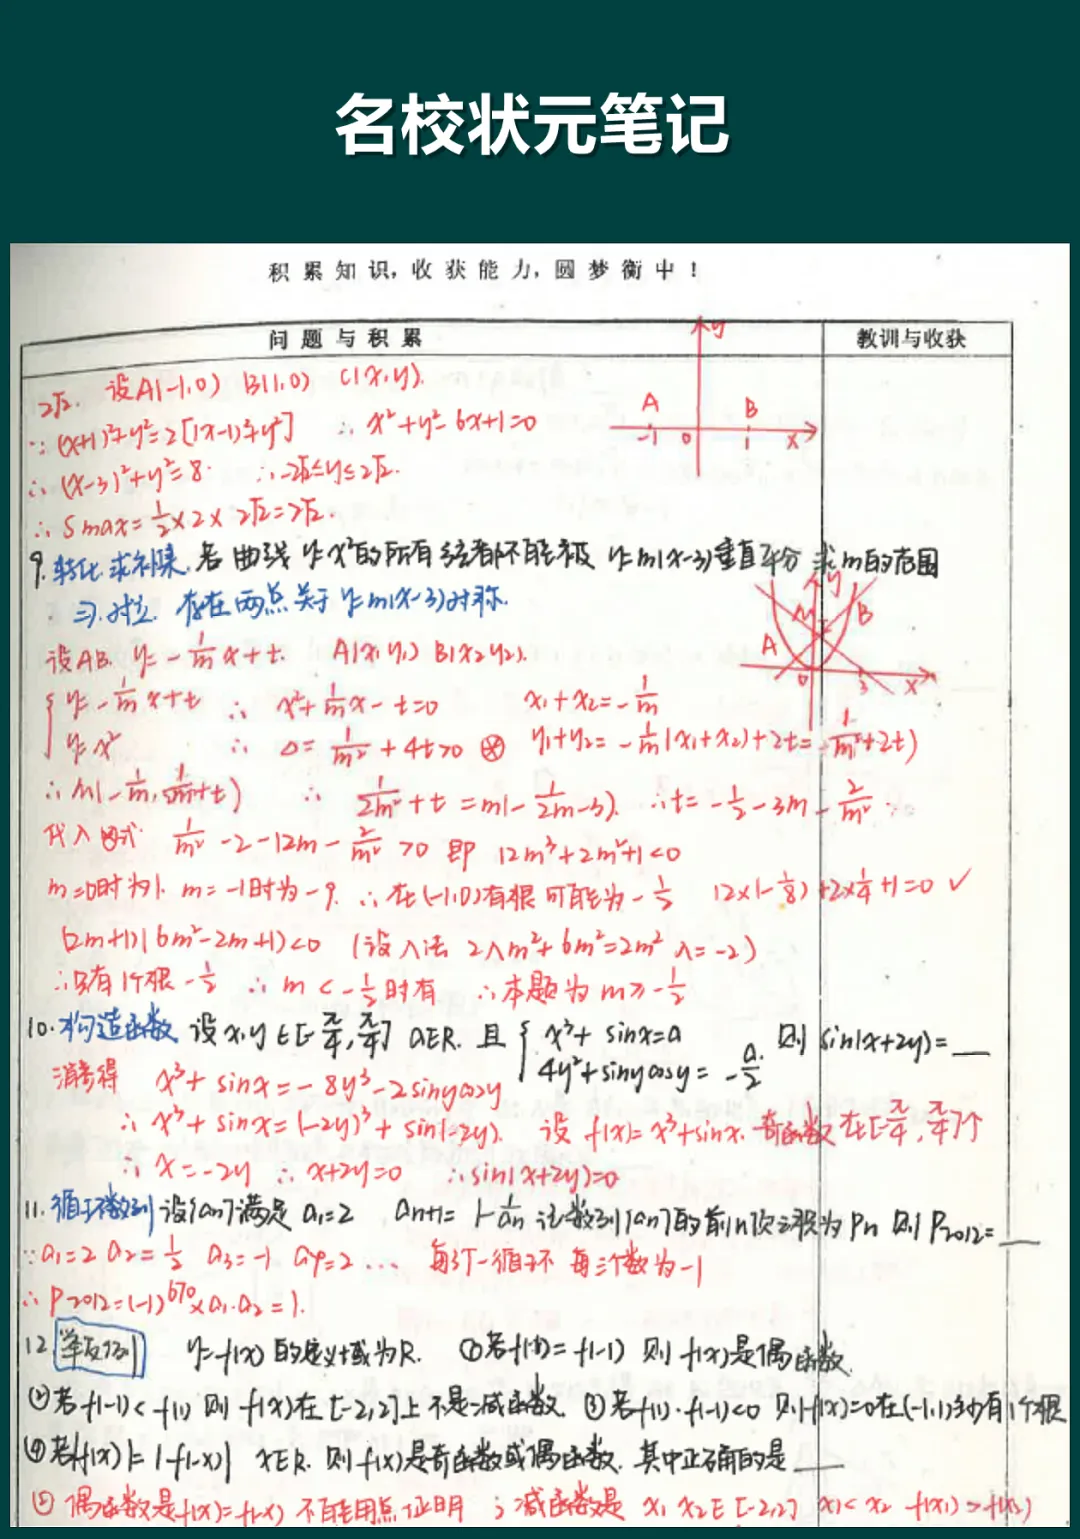 名校状元笔记
积累知识,收获能力,圆梦衡中!
问题与积累 教训与收获
2√2. 设A(-1,0) B(1,0) C(x,y).
y
A B
-1 0 1 x
∵ (x+1)²+y²=2[(x-1)²+y²] ∴ x²+y²-6x+1=0
∴ (x-3)²+y²=8 ∴ -2√2≤y≤2√2.
∴ Smax=1/2×2×2√2=2√2.
9. 转化求补集. 若曲线y=x²的所有弦都不能被y=m(x-3)垂直平分 求m的范围
对立. 存在两点关于y=m(x-3)对称.
y
M B
A
0 3 x
设AB. y=-1/m x+t. A(x₁y₁) B(x₂y₂).
{y=-1/m x+t ∴ x²+1/m x-t=0 x₁+x₂=-1/m
y=x² ∴ Δ=1/m²+4t>0 ⊗ y₁+y₂=-1/m(x₁+x₂)+2t=1/m²+2t)
∴ 1/2m²+t=m(-1/2m-3). ∴t=-1/2-3m-
代入 式 1/m²-2-12m-2/m²>0 即 12m³+2m²+1<0
m=0时为1. m=-1时为-9. ∴在(-1,0)有根可能为-1/2 12×(-1/8)+2×1/4+1=0 ✓
(2m+1)(6m²-2m+1)<0 (设入法 2λm²+6m²=2m² λ=-2)
∴只有1个根-1/2 ∴ m<-1/2时有 ∴本题为m≥-1/2
10.构造函数 设x,y∈[-π/4,π/4] a∈R. 且{x³+sinx=a 则sin(x+2y)=__
4y³+sinycosy=-a/2
消a得 x³+sinx=-8y³-2sinycosy
∴ x³+sinx=(-2y)³+sin(-2y). 设f(x)=x³+sinx. 奇函数在[-π/4,π/4]个
∴ x=-2y ∴ x+2y=0 ∴sin(x+2y)=0
11.循环数列 设{an}满足a₁=2 an+1=1-1/an 记数列{an}的前n项之积为Pn 则P2012=__
∵a₁=2 a₂=1/2 a₃=-1 a₄=2… 每3个一循环 每三个数为-1
∴ P2012=(-1)^670×a₁·a₂=1.
12 举反例 y=f(x)的定义域为R. ①若f(1)=f(-1) 则f(x)是偶函数.
②若f(-1)<f(1) 则f(x)在[-2,2]上不是减函数. ③若f(1)·f(-1)<0 则f(x)=0在(-1,1)至少有1个根
④若|f(x)|=|f(-x)| x∈R. 则f(x)是奇函数或偶函数. 其中正确的是__
偶函数是f(x)=f(-x) 不能用点证明; 减函数是 x₁ x₂∈[-2,2] x₁<x₂ f(x₁)>f(x₂)